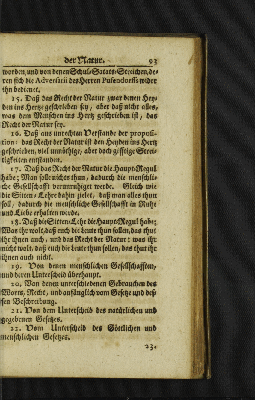 der Natur. 93
worden, und von denen Schul-Satans-Streichen, de-
ren sich die Adversarii des Herren Pufendorffs wider
ihn bedienet.
15. Daß das Recht der Natur zwar denen Hey-
den ins Hertz geschrieben sey, aber daß nicht alles,
was dem Menschen ins Hertz geschrieben ist, das
Recht der Natur sey.
16. Daß aus unrechten Verstande der proposi-
tion: das Recht der Natur ist den Heyden ins Hertz
geschrieben, viel unnöthige, aber doch gifftige Strei-
tigkeiten entstanden.
17. Daß das Recht der Natur die Haupt-Regul
habe; Man solle nichts thun, dadurch die menschli-
che Gesellschafft verunruhiget werde. Gleich wie
die Sitten-Lehre dahin zielet, daß man alles thun
soll, dadurch die menschliche Gesellschafft in Ruhe
und Liebe erhalten werde.
18. Daß die Sitten-Lehr die Haupt-Regul habe:
Was ihr wolt, daß euch die leute thun sollen, das thut
ihr ihnen auch. und das Recht der Natur: was ihr
nicht wolt, daß euch die leute thun sollen, das thut ihr
ihnen auch nicht.
19. Von denen menschlichen Gesellschafften,
und deren Unterscheid überhaupt.
20. Von denen unterschiedenen Gebrauchen des
Worts, Recht, und anfänglich vom Gesetz und des-
sen Beschreibung.
21. Von dem Unterscheid des natürlichen und
gegebenen Gesetzes.
22. Vom Unterscheid des Göttlichen und
menschlichen Gesetzes.
23.